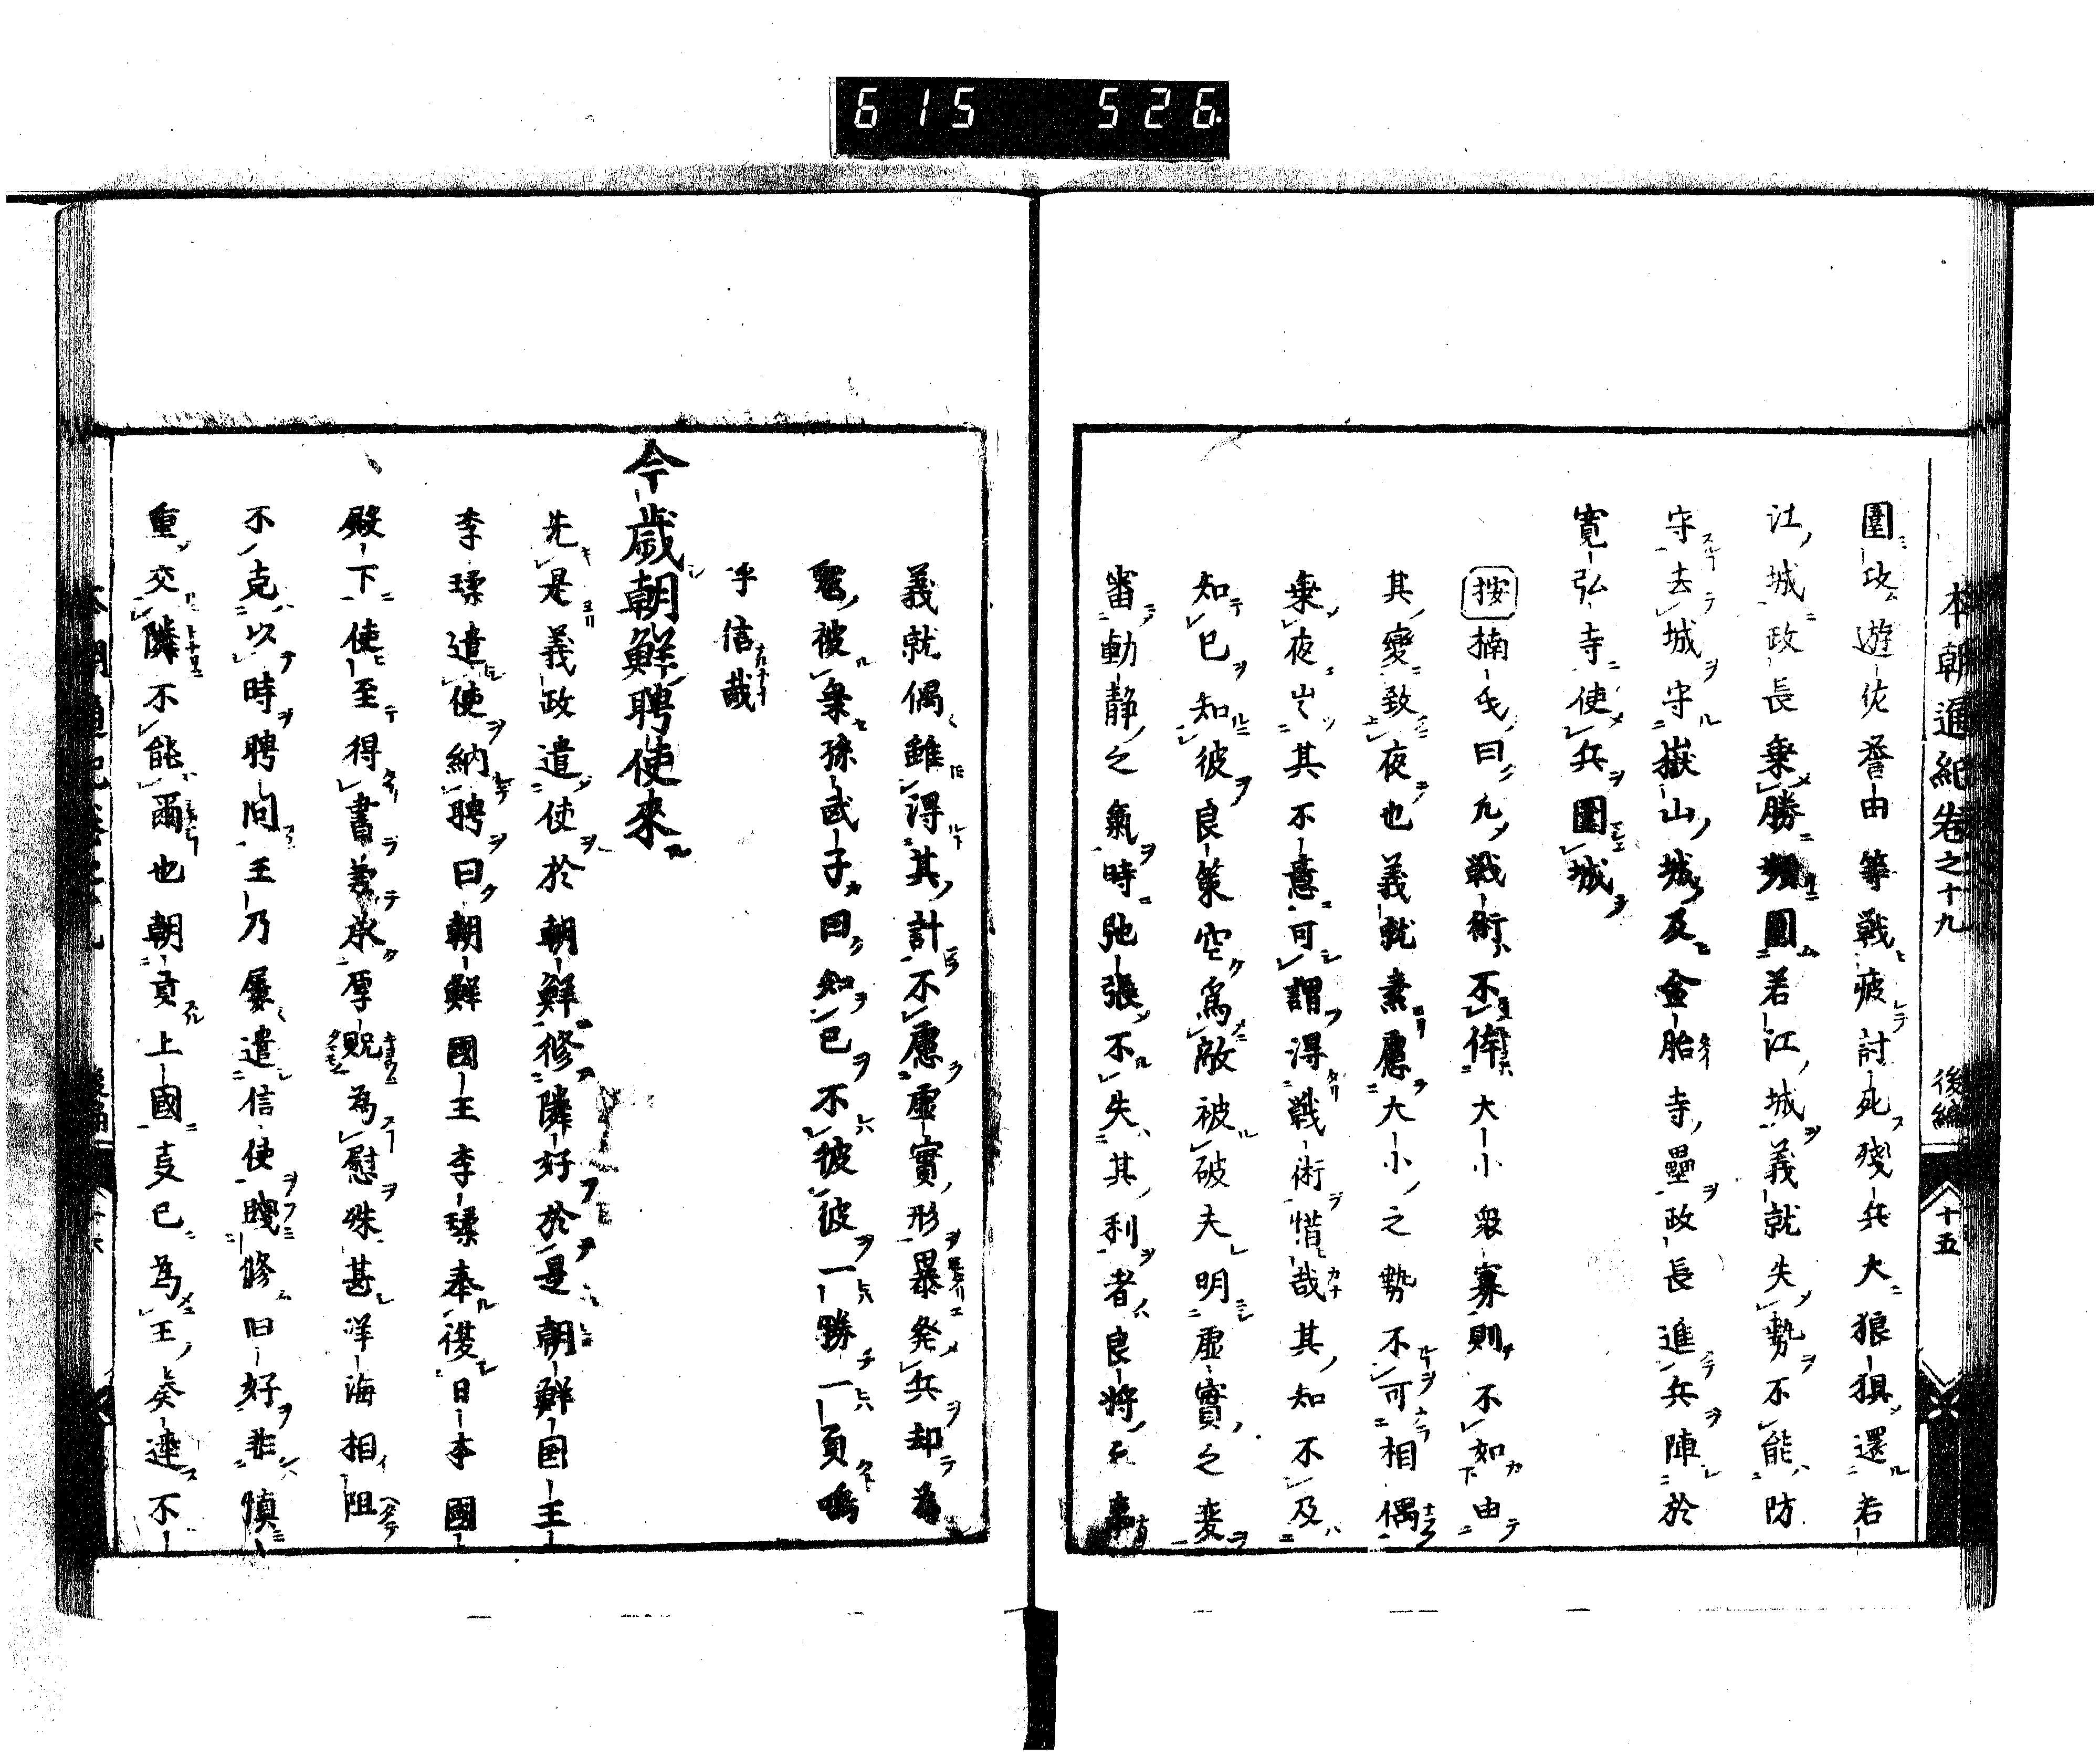 615 526
本朝通紀卷之十九 後編 十五
圍攻遊佐譽田等戰疲討死殘兵大狼狽還若
江城政長乗勝頻圍若江城義就失勢不能防
守去城守嶽山城及金胎寺壘政長進兵陣於
寛弘寺使兵圍城
按楠氏曰凡戦術不倚大小衆寡則不如由
其變致夜也義就素慮大小之勢不可相偶
乗夜出其不意可謂得戦術惜哉其知不及
知已知彼良策空爲敵被破夫明虚實之変
審動静之氣時弛張不失其利者良将之事
義就偶雖得其計不慮虚實形暴発兵却為
被乗孫武子曰知已不彼彼一勝一負嗚
乎信哉
今歳朝鮮聘使來
先是義政遣使於朝鮮修隣好於是朝鮮国王
李瑈遣使納聘曰朝鮮國王李瑈奉復日本國
殿下使至得書兼承厚貺為慰殊甚洋海相阻
不克以時聘問王乃屢遣信使賤修旧好非慎
重交隣不能爾也朝貢上國已為王奏達不